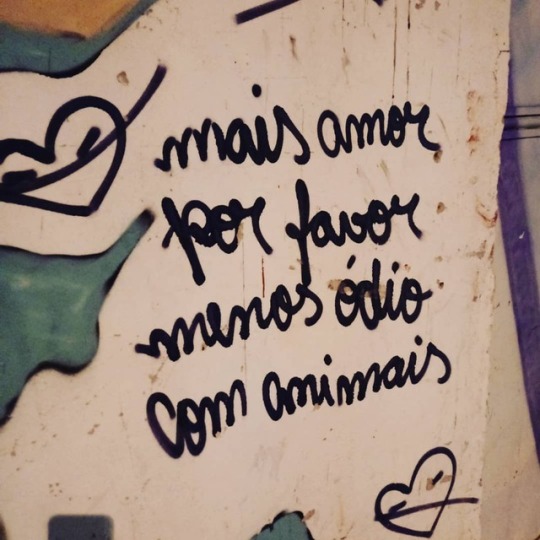 mais amor
por favor
menos ódio
com animais